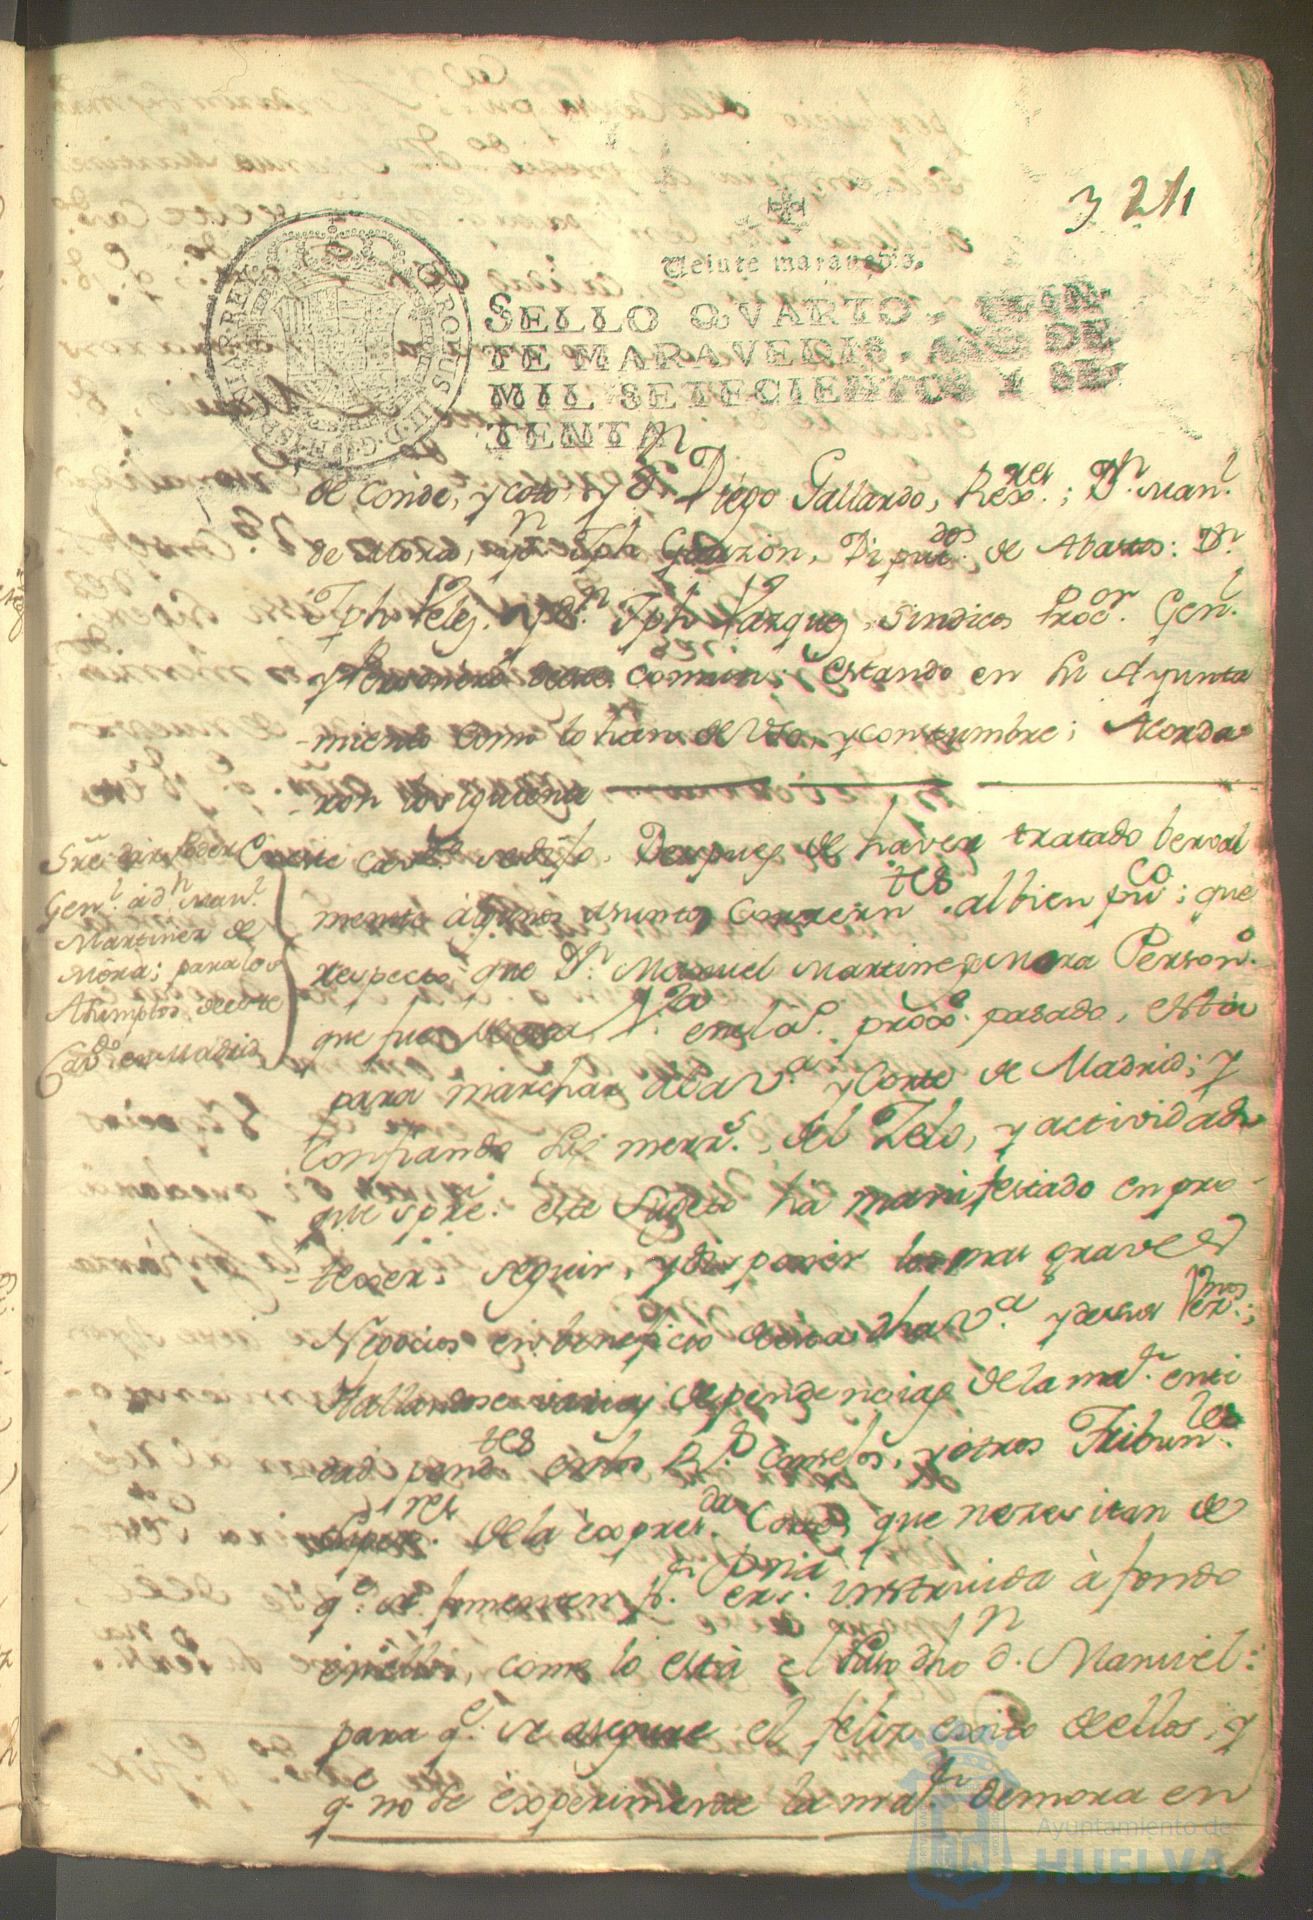 321
Veinte maravedis.
SELLO QVARTO, VEIN-
TE MARAVEDIS, AÑO DE
MIL SETECIENTOS Y SE-
TENTA.
CAROLUS III D. G. HISPANIAR. REX
de Conde, y coto, y Dn. Diego Gallardo, Rexres.; Dn. Manl.
de Mora, y Dn. Jph Garzón, Diputdos. de Abastos: Dn.
Jph Velez. y Dn. Jph Vazquez, Sindicos Procor. Genl.
y Personero deste comun; estando en su Ayunta
miento como lo han de Uso, y constumbre; Acorda-
-ron lo siguiente
Sre. dar Poder
Genl. a dn Manl.
Martinez de
Mora; para los
Asumptos deeste
Cavdo. en Madrid
En este Cavdo. se dijo. Despues de haver tratado berval
mente algunos asuntos Conzerntes. al bien puco.; que
respecto que Dn. Manuel Martinez Mora Persono.
que fue en el ao. proxo. pasado, està
para marchar a la Va. y Corte de Madrid; y
Confiando Ss. merzs., del Zelo, y actividad
que spre. este Sugeto hà manifestado en pro-
-texer, seguir, y disponer los mas graves
Negocios en beneficio de esta dha Va. y de sus Verznos.;
Hallandose varias dependencias de la mar. enti
dad pendtes. en los Rs. Consejos, y otros Tribunles.
Superes. de la expresda. Corte, que nezesitan de
qe. se fomenten pr. instruida à fondo
en ellos, como lo està el suso dho dn. Manuel:
para qe. se asegure el feliz exito de ellos; y
qe no se experimente la mar. demora en
Ayuntamiento de
HUELVA